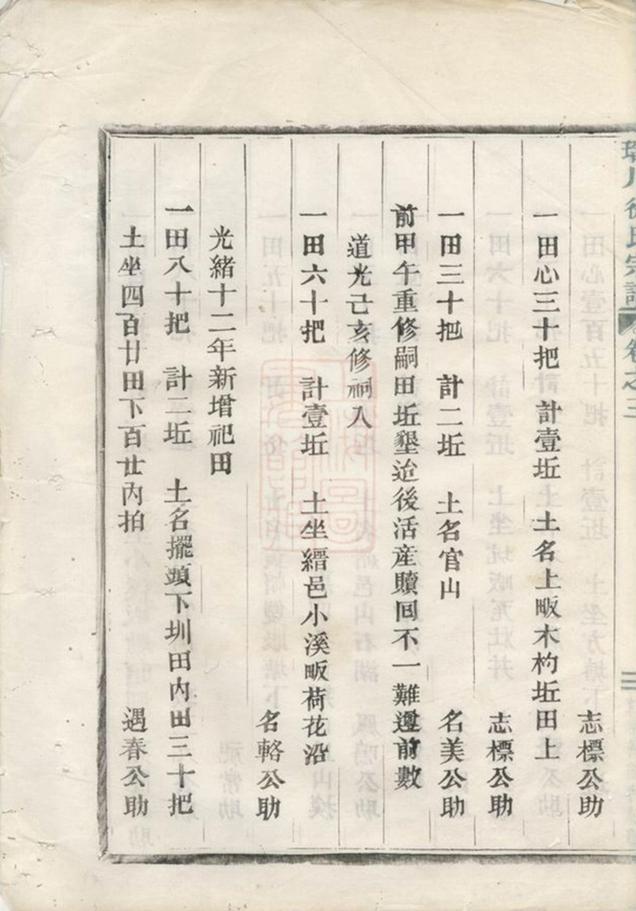 徐氏宗譜
卷之三
志標公助
一田心三十把 計壹坵 土名上畈木杓坵田上
志標公助
一田三十把 計二坵 土名官山
名美公助
前甲午重修嗣田坵墾迨後活産贖回不一難遵前數
道光己亥修祠入
一田六十把 計壹坵 土坐縉邑小溪畈荷花沿
名輅公助
光緒十二年新增祀田
一田八十把 計二坵 土名擺頭下圳田內田三十把
土坐四百廿田下百廿內拍
遇春公助